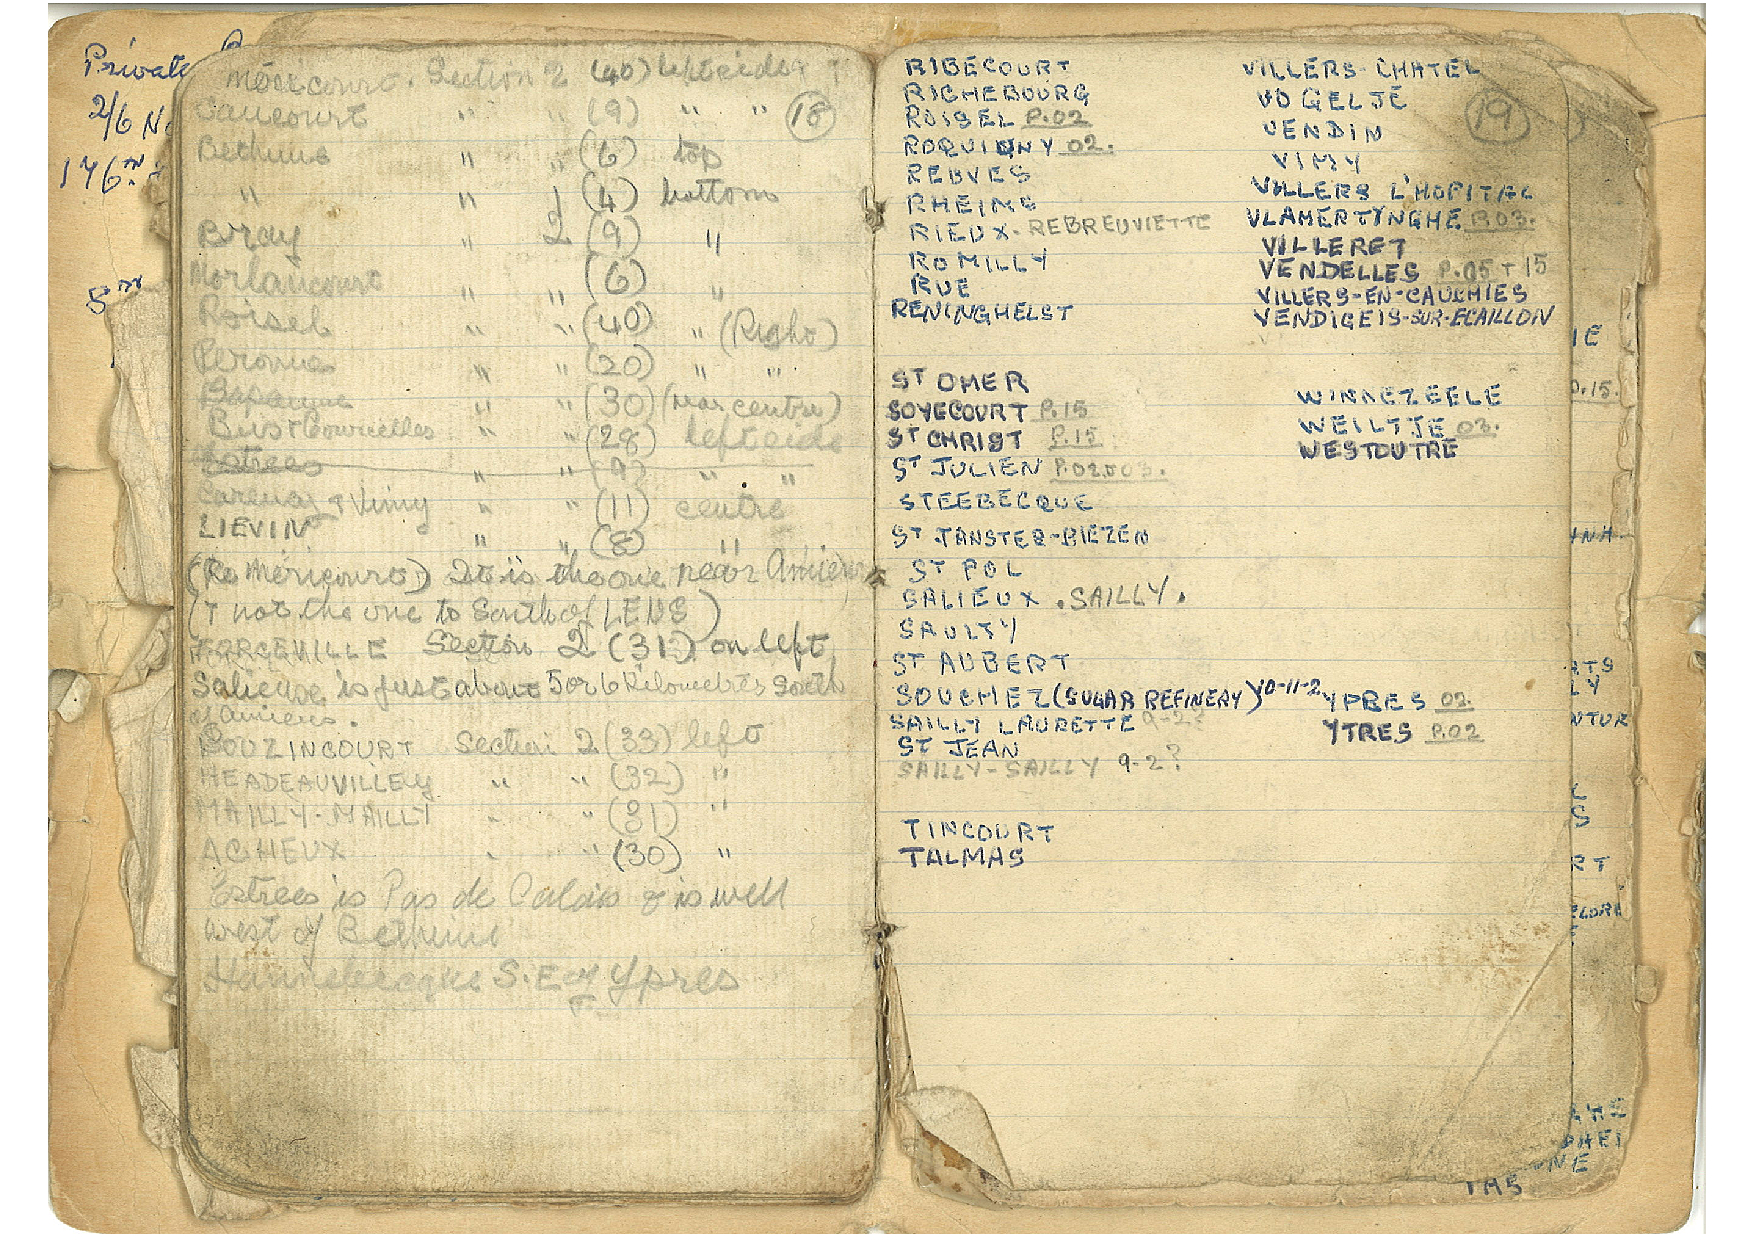 Private
2/6 No
176
5
18
Mericourt. Section 2 (40) leftside
Saucourt " " (9) " "
Bethune " " (6) top
" " 1 (4) bottom
Bray " 2 (9) "
Morlancourt " " (6) "
Roisel " " (40) " (Right)
Peronne " " (20) " "
Bapaume " " (30) (near centre)
Bus & Gouvelles " " (28) leftside
Estrees " (92 " "
Carency & Vimy " " (11) centre
LIEVIN " " (8) "
(Re Méricourt) It is the one near Amiens
(& not the one to South of LENS)
FORCEVILLE Section 2 (31) on left
Salieux is just about 5 or 6 Kilometers South
of Amiens.
BOUZINCOURT Section 2 (33) left
HEADEAUVILLE " " (32) "
MAILLY-MAILLY " " (31) "
ACHEUX " " (30) "
Estrees is Pas de Calais & is well
west of Bethune
Hannebecque S.E of Ypres
19
RIBECOURT
RICHEBOURG
ROISEL P.02
ROQUIGNY 02.
REBVES
RHEIMS
RIEUX - REBREUVIETTE
ROMILLY
RUE
RENINGHELST
ST OMER
SOYECOURT P.15
ST CHRIST P.15
ST JULIEN P.02.003.
STEEBECQUE
ST JANSTER-BIEZEN
ST POL
SALIEUX . SAILLY.
SAULTY
ST AUBERT
SOUCHEZ (SUGAR REFINERY) 10-11-2
SAILLY LAURETTE 9-2?
ST JEAN
SAILLY-SAILLY 9-2?
TINCOURT
TALMAS
VILLERS-CHATEL
VOGELJE
VENDIN
VIMY
VILLERS L'HOPITAL
VLAMERTYNGHE P.03.
VILLERET
VENDELLES P.05 + 15
VILLERS-EN-CAUCHIES
VENDIGEIS-SUR-ECAILLON
WINNEZEELE
WEILTJE 03.
WESTOUTRE
YPRES 02.
YTRES P.02